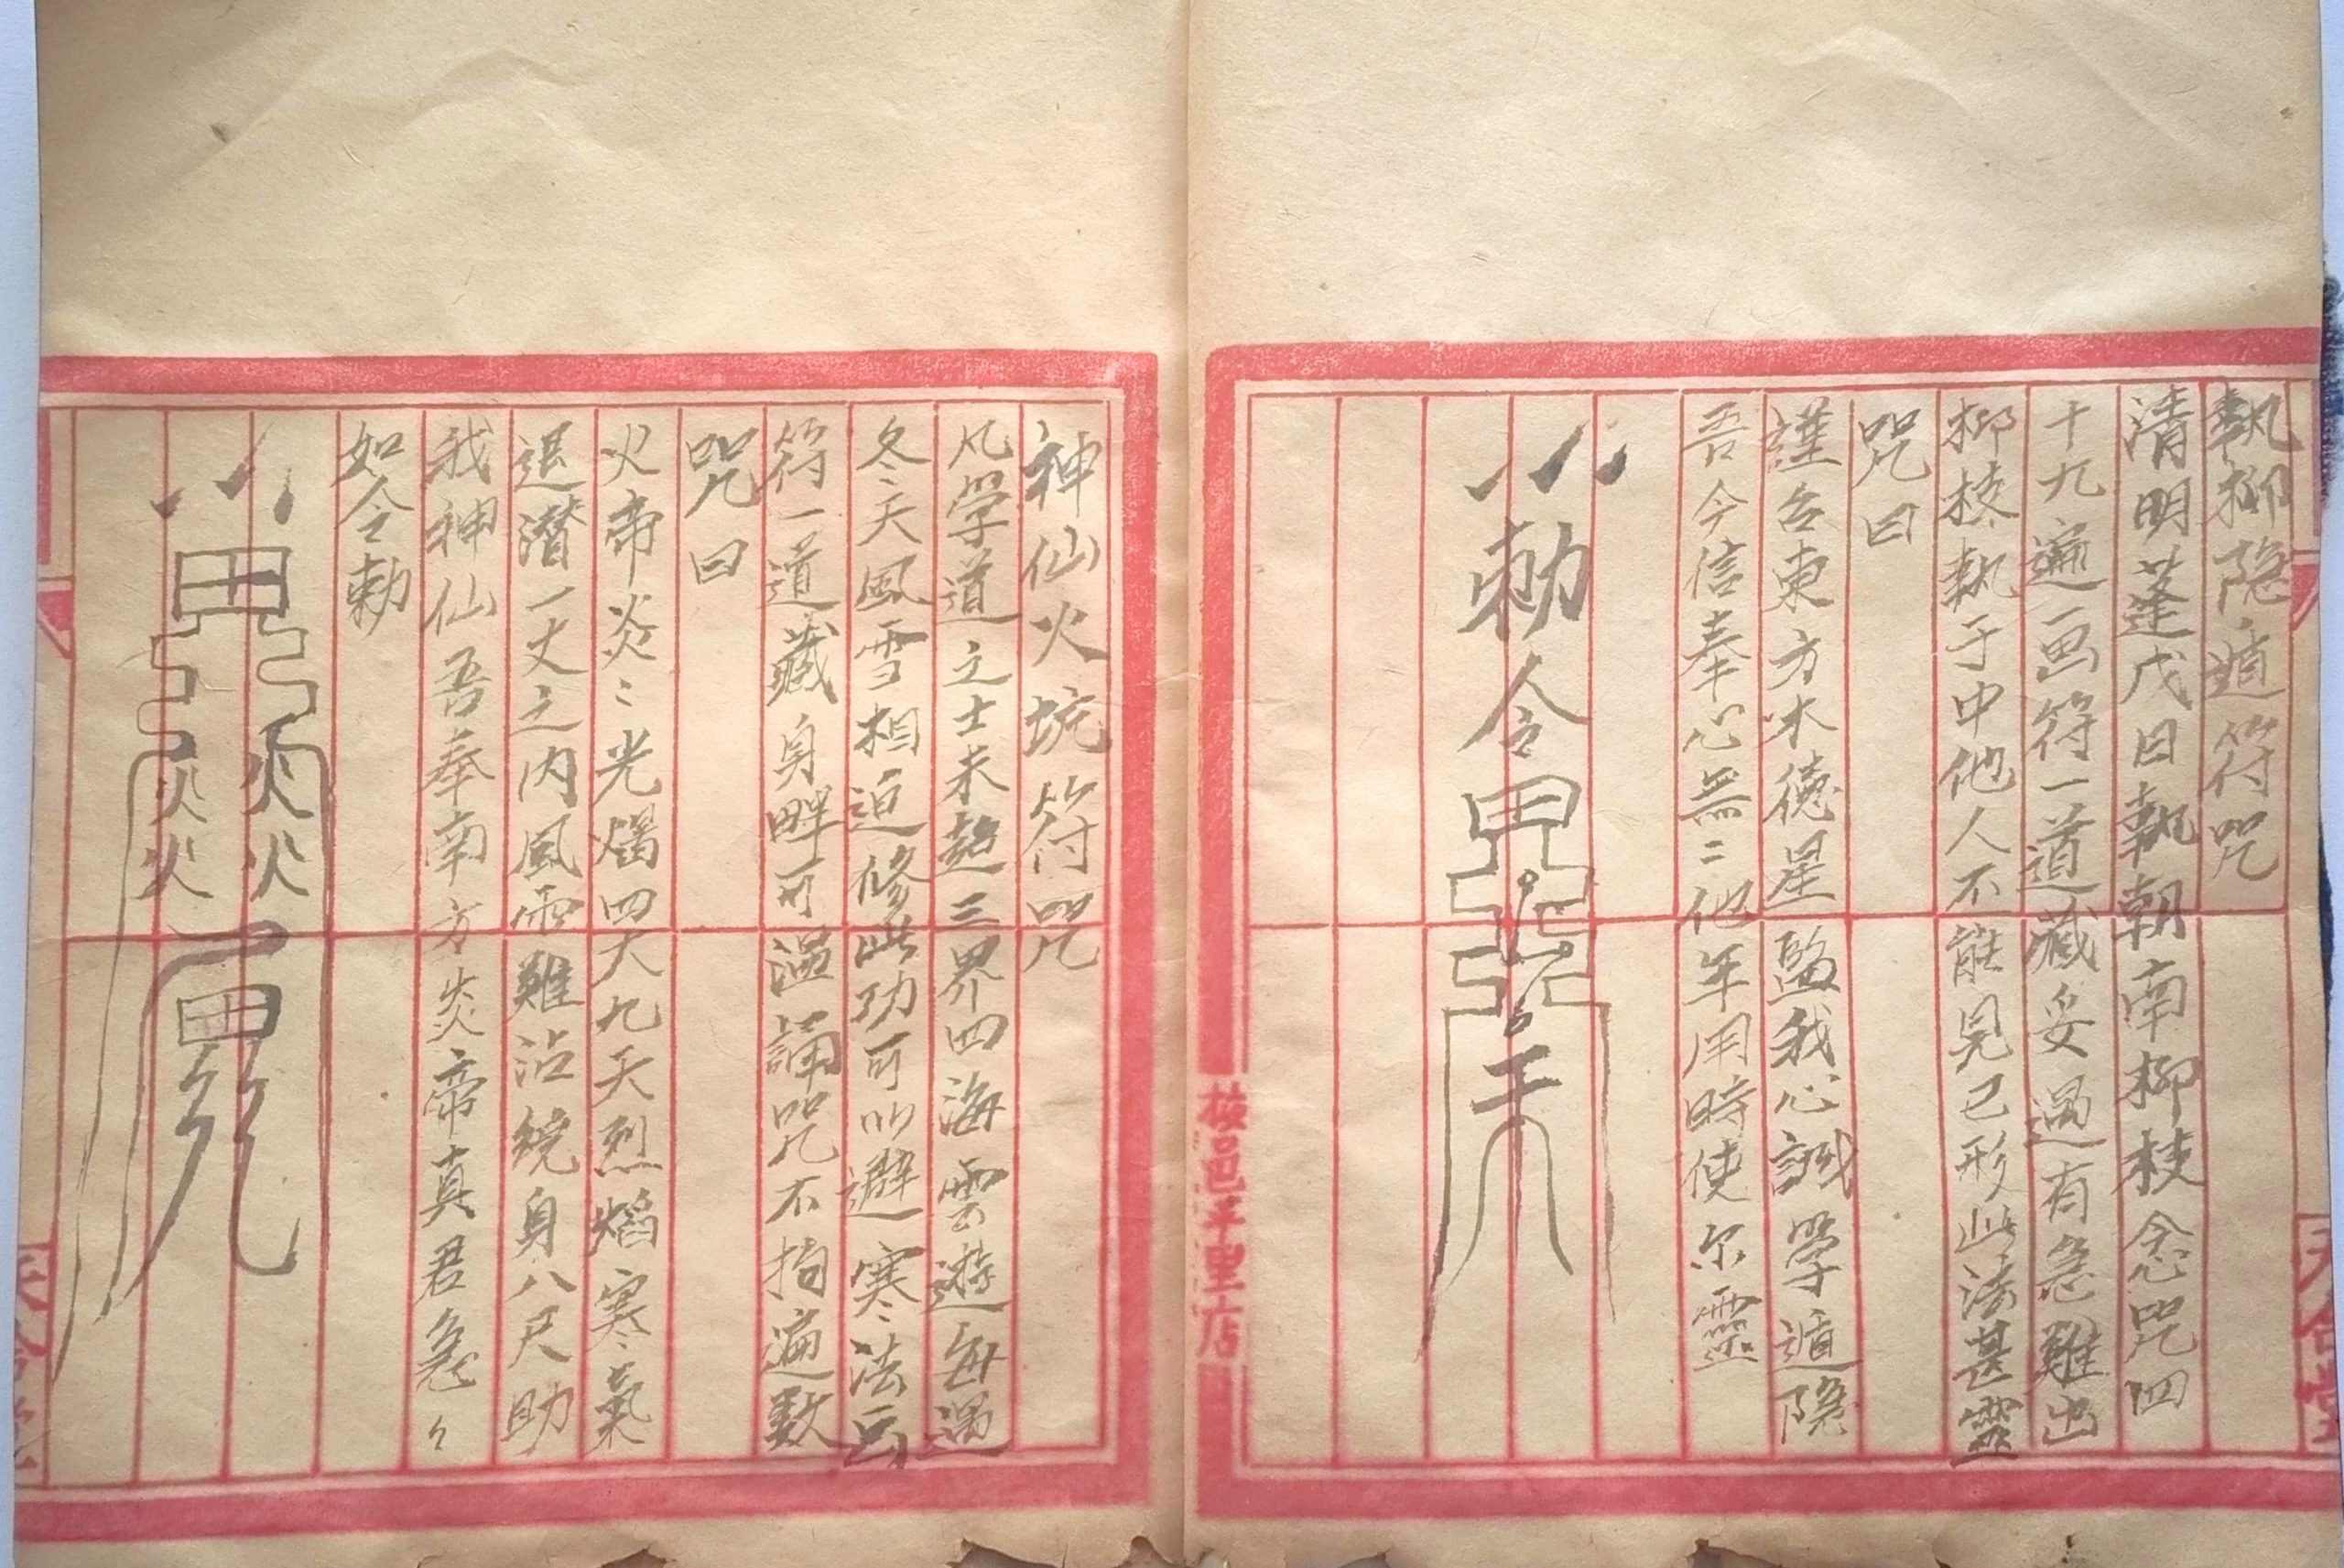 執柳隐遁符咒
清明蓬戊日執朝南柳枝念咒四
十九遍画符一道藏妥遇有急難出
柳枝執于中他人不能見已形此法甚靈
咒曰
謹告東方木德星監我心誠學遁隱
吾今信奉心無二他年用時使尔靈
勅令
神仙火坑符咒
凡学道之士未超三界四海雲遊每遇
冬天風雪相迫修此功可以避寒法画
符一道藏身畔可温誦咒不拘遍数
咒曰
火帝炎〻光燭四大九天烈焰寒氣
退潛一丈之内風雪難沾繞身八尺助
我神仙吾奉南方炎帝真君急々
如令勅